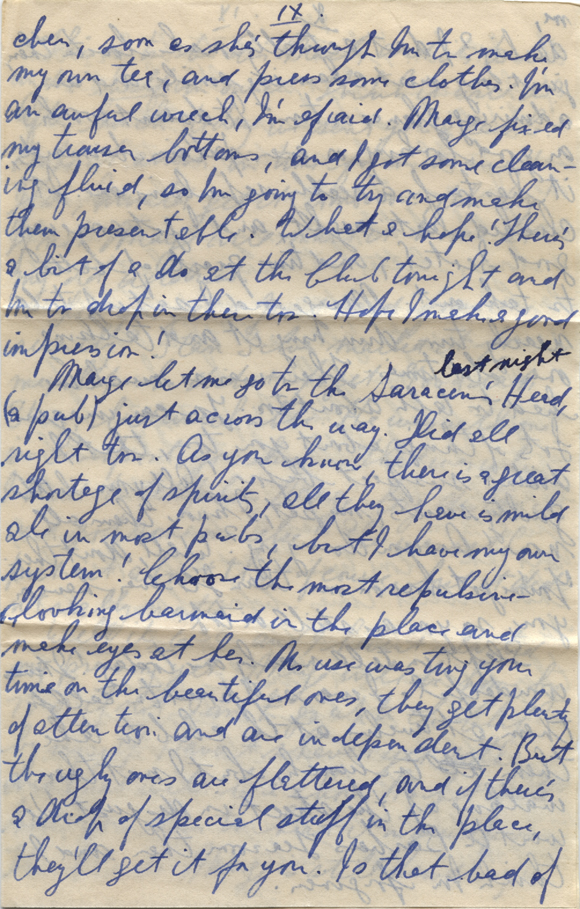 IX.
chen, soon as she's through I'm to make
my own tea, and press some clothes. I'm
an awful wreck, I'm afraid. Marge fixed
my trouser bottoms, and I got some clean-
ing fluid, so I'm going to try and make
them presentable. What a hope! There's
a bit of a do at the club tonight and
I'm to drop in there too. Hope I make a good
impression!
last night
Marge let me go to the Saracen's Head,
(a pub) just across the way. I did all
right too. As you know, there is a great
shortage of spirits, all they have is mild
ale in most pubs, but I have my own
system! Choose the most repulsive-
looking barmaid in the place and
make eyes at her. No use wasting your
time on the beautiful ones, they get plenty
of attention and are independent. But
the ugly ones are flattered, and if there's
a drop of special stuff in the place,
they'll get it for you. Is that bad of